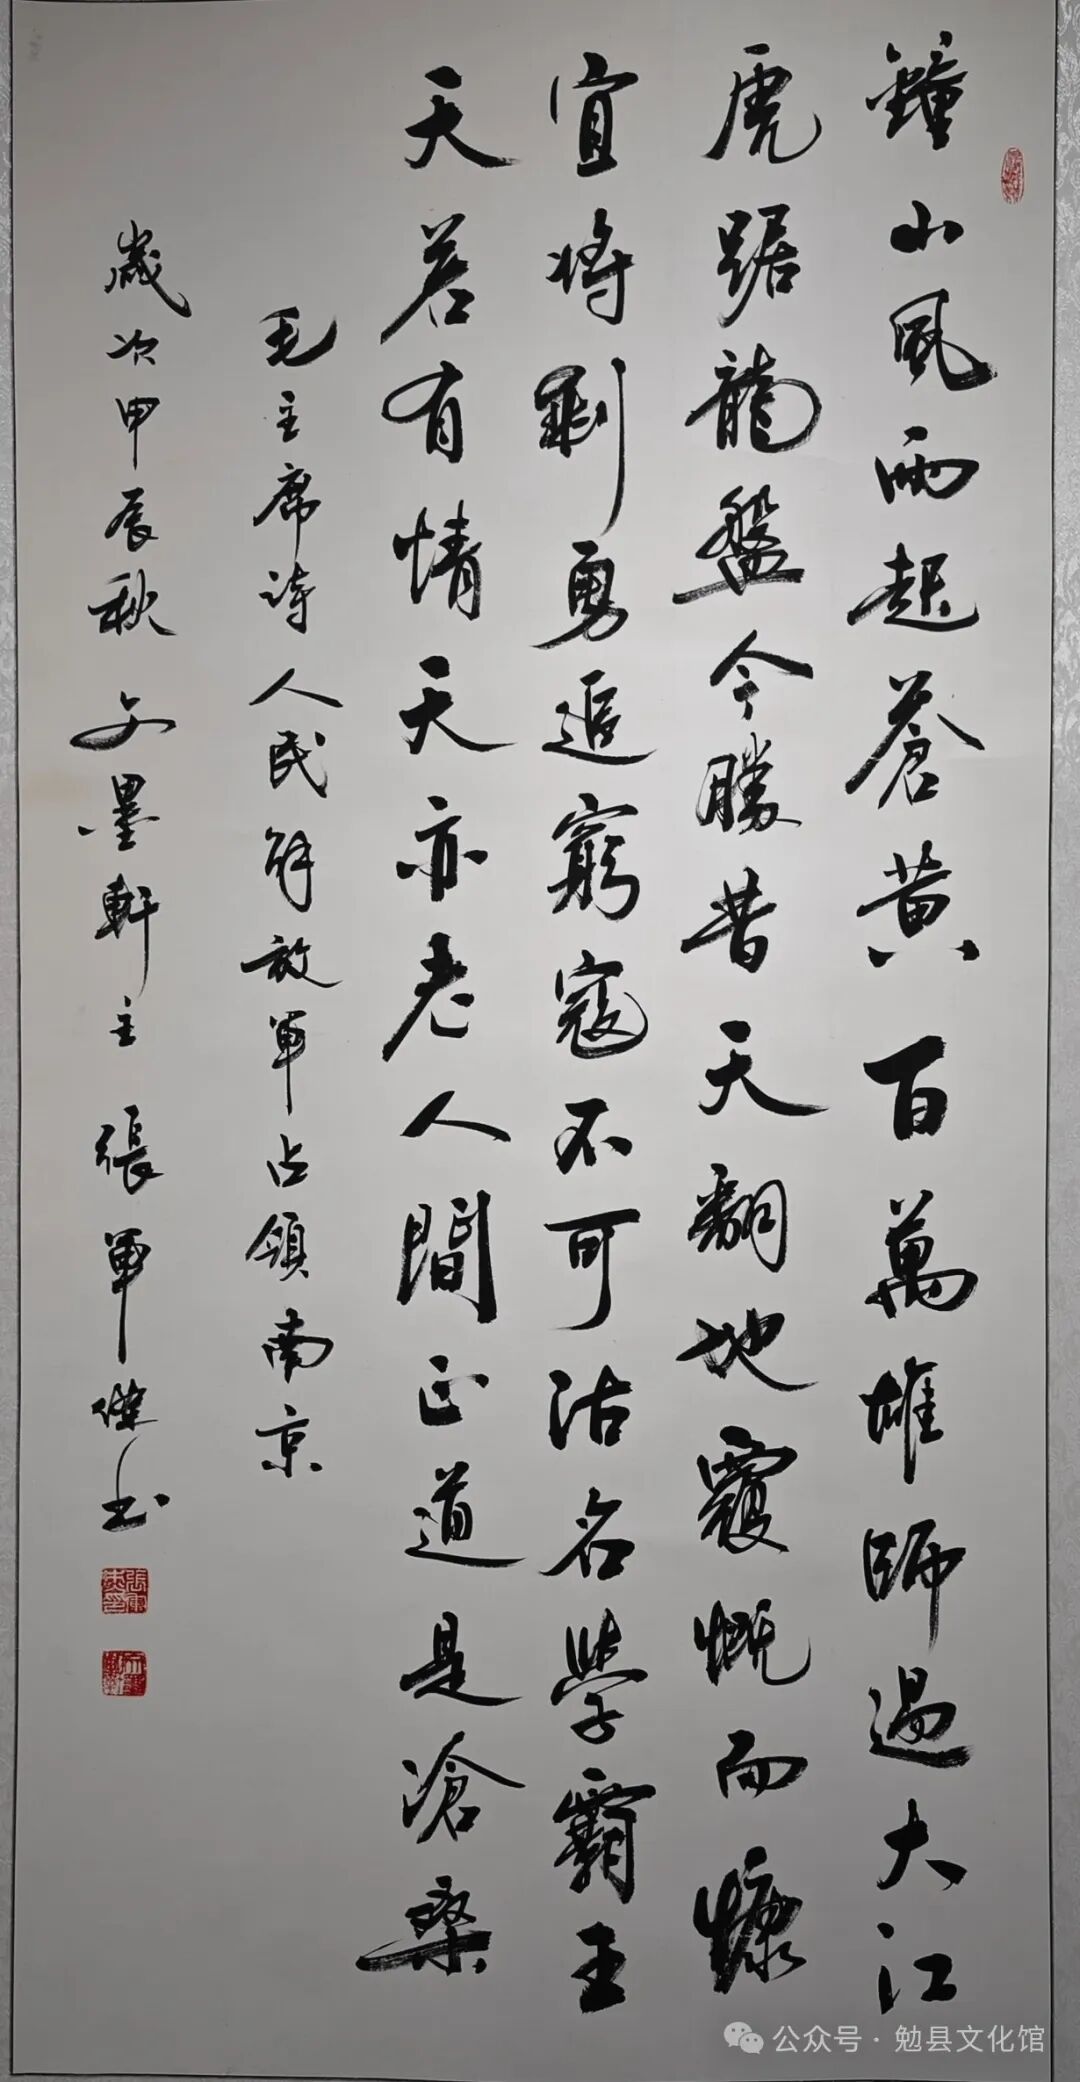 鐘山風雨起蒼黃百萬雄師過大江
虎踞龍盤今勝昔天翻地覆慨而慷
宜將剩勇追窮寇不可沽名學霸王
天若有情天亦老人間正道是滄桑
毛主席诗人民解放軍占領南京
歲次甲辰秋文墨軒主張軍傑书
公众号·勉县文化馆